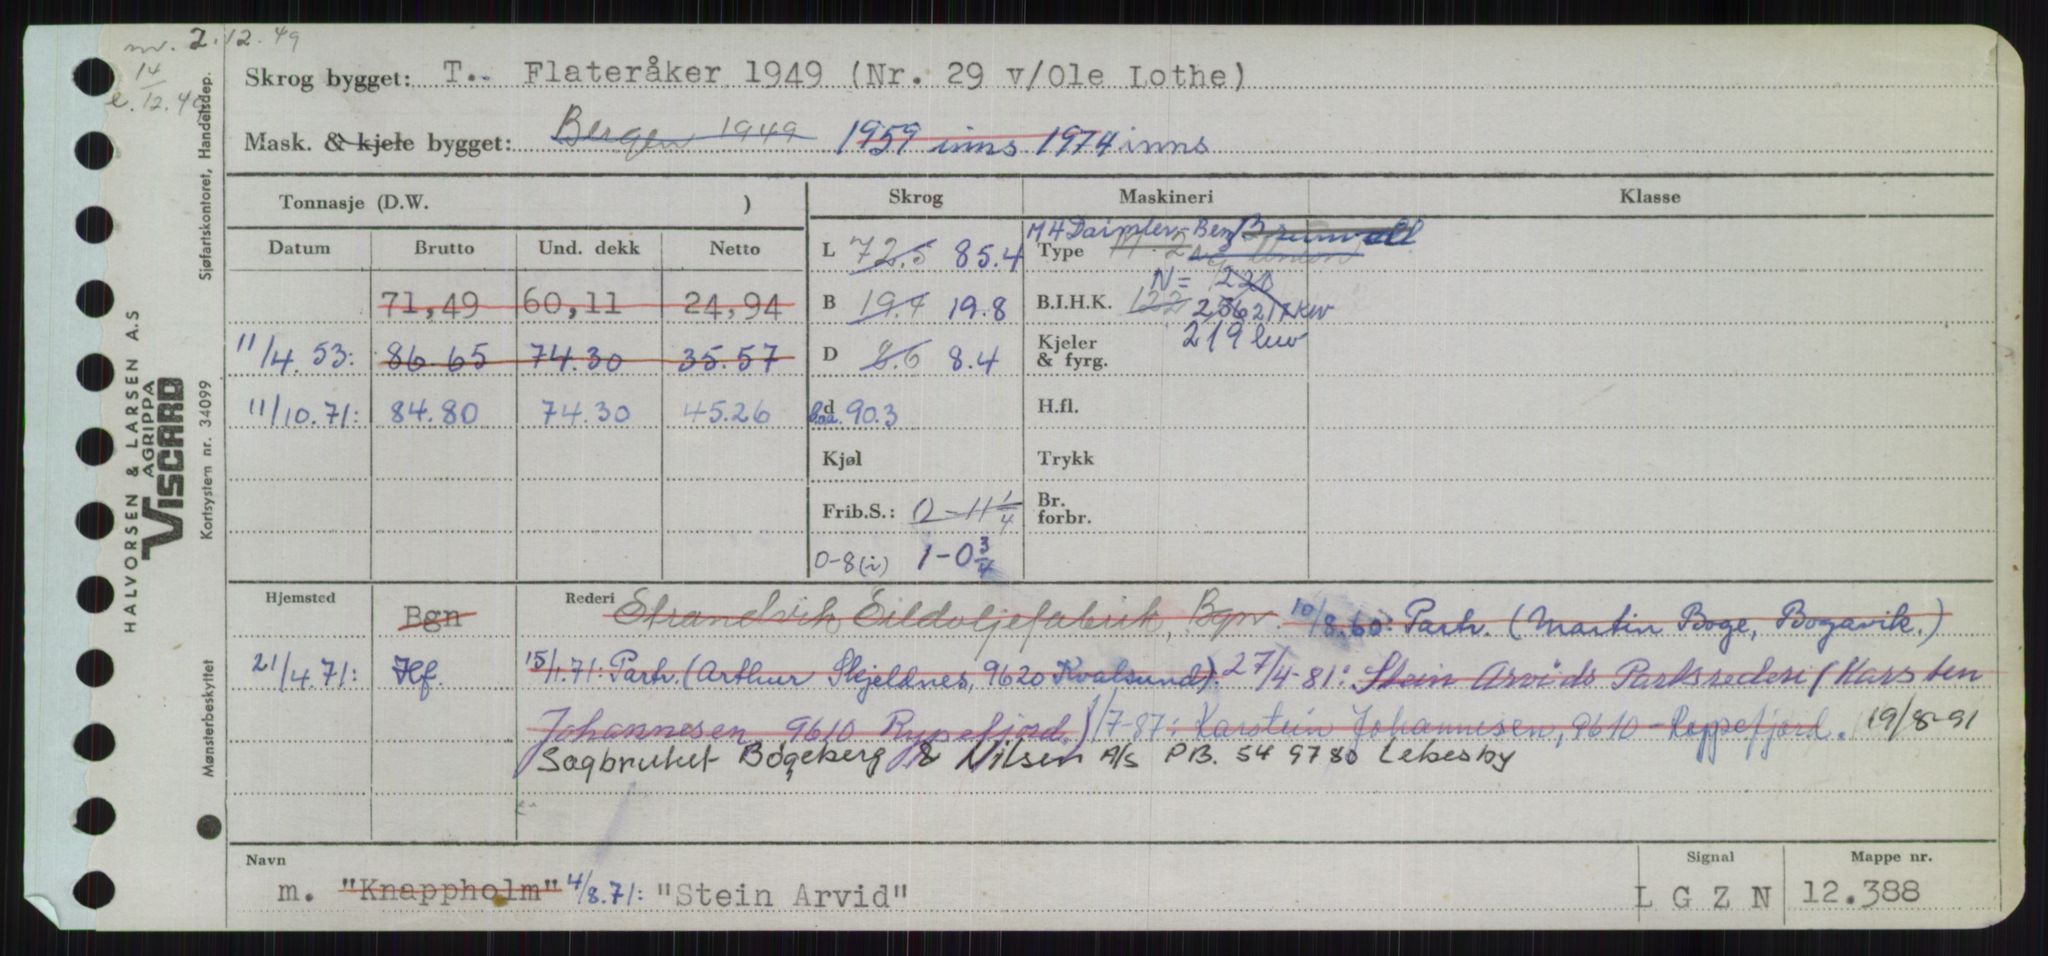 nr. 2.12.49
14
e.12.49
Skrog bygget: T. Flateråker 1949 (Nr. 29 v/Ole Lothe)
Mask. & kjele bygget: Bergen 1949 1959 inns 1974 inns
Tonnasje (D.W. )
Skrog Maskineri Klasse
Datum Brutto Und. dekk Netto
71,49 60,11 24,94
11/4.53: 86.65 74.30 35.57
11/10.71: 84.80 74.30 45.26
L 72.5 85.4
B 19.7 19.8
D 8.6 8.4
d l.o.a. 90.3
Kjøl
Frib.S.: 0-11 1/4
0-8(i) 1-0 3/4
M4 Daimler-Ben Brunvoll
Type Union
N= 220
B.I.H.K. 122 256 217 kw
Kjeler 219 kw
& fyrg.
H.fl.
Trykk
Br.
forbr.
Hjemsted Bgn Rederi Strandvik Sildoljefabrik, Bgn. 10/8.60: Partr. (Martin Boge, Bogavik.)
21/4.71: Hf. 15/1.71: Partr. (Arthur Skjeldnes, 9620 Kvalsund) 27/4-81: Stein Arvids Partsrederi (Karsten
Johannesen, 9610 Rypefjord.) 1/7-87: Karstein Johannesen, 9610-Rypefjord. 19/8-91
Sagbruket Bøgeberg & Nilsen A/S P.B. 54 9780 Lebesby
Navn Signal Mappe nr.
m. "Knappholm" 4/8.71: "Stein Arvid" L G Z N 12.388
HALVORSEN & LARSEN A.S
AGRIPPA
VISCARD
Mønsterbeskyttet Kortsystem nr. 34099 Sjøfartskontoret, Handelsdep.